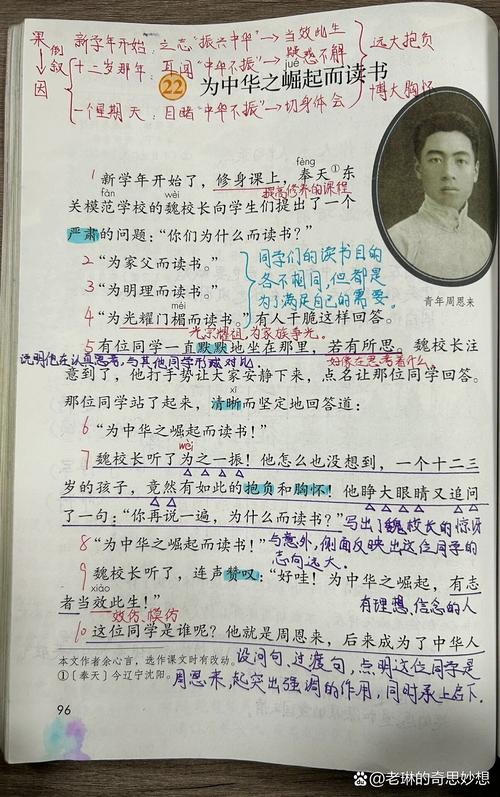 果 倒叙 因
新学年开始：立志"振兴中华"→当效此生
十二岁那年：耳闻"中华不振"→疑惑不解
一个星期天：目睹"中华不振"→切身体会
远大抱负
博大胸怀
jué
22 为中华之崛起而读书
fèng
1 新学年开始了，修身课上，奉天①东
提高修养的课程
fàn wèi
关模范学校的魏校长向学生们提出了一个
严肃的问题：“你们为什么而读书？”
2 “为家父而读书。”
3 “为明理而读书。”
méi
4 “为光耀门楣而读书。”有人干脆这样回答。
同学们的读书目的
各不相同，但都是
为了满足自己的需要。
青年周恩来
光宗耀祖，为家族争光。
5 有位同学一直默默地坐在那里，若有所思。魏校长注
说明他在认真思考，与其他同学形成对比。
好像在思考着什么。
意到了，他打手势让大家安静下来，点名让那位同学回答。
xī
那位同学站了起来，清晰而坚定地回答道：
6 “为中华之崛起而读书！”
wèi
7 魏校长听了为之一振！他怎么也没想到，一个十二三
岁的孩子，竟然有如此的抱负和胸怀！他睁大眼睛又追问
了一句：“你再说一遍，为什么而读书？”
写出了魏校长的惊讶
与意外，侧面反映出这位同学的
志向远大。
8 “为中华之崛起而读书！”
9 魏校长听了，连声赞叹：“好哇！为中华之崛起，有志
xiào
者当效此生！”
有理想、信念的人
效仿、模仿
10 这位同学是谁呢？他就是周恩来，后来成为了中华人
设问句、过渡句，点明这位同学是
周恩来，起突出强调的作用，同时承上启下。
本文作者余心言，选作课文时有改动。
①〔奉天〕今辽宁沈阳。
96
@老琳的奇思妙想